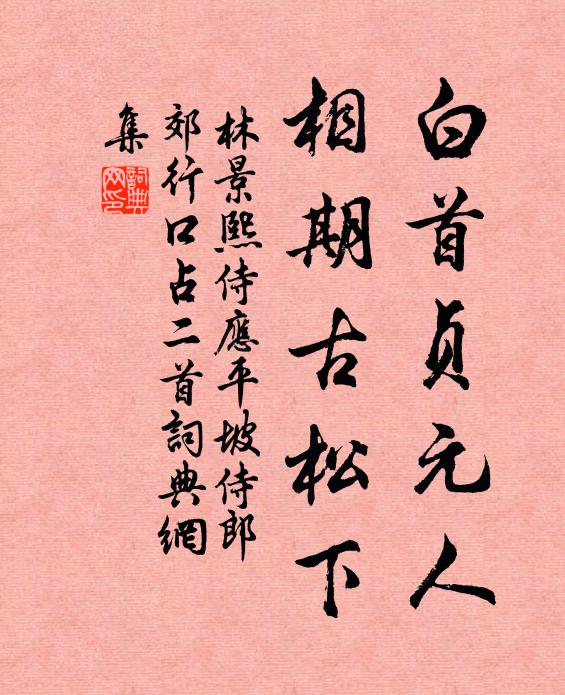 白首贞元人
相期古松下
林景熙侍應平坡侍郎
郊行口占二首詞典網
集
詞典
网印